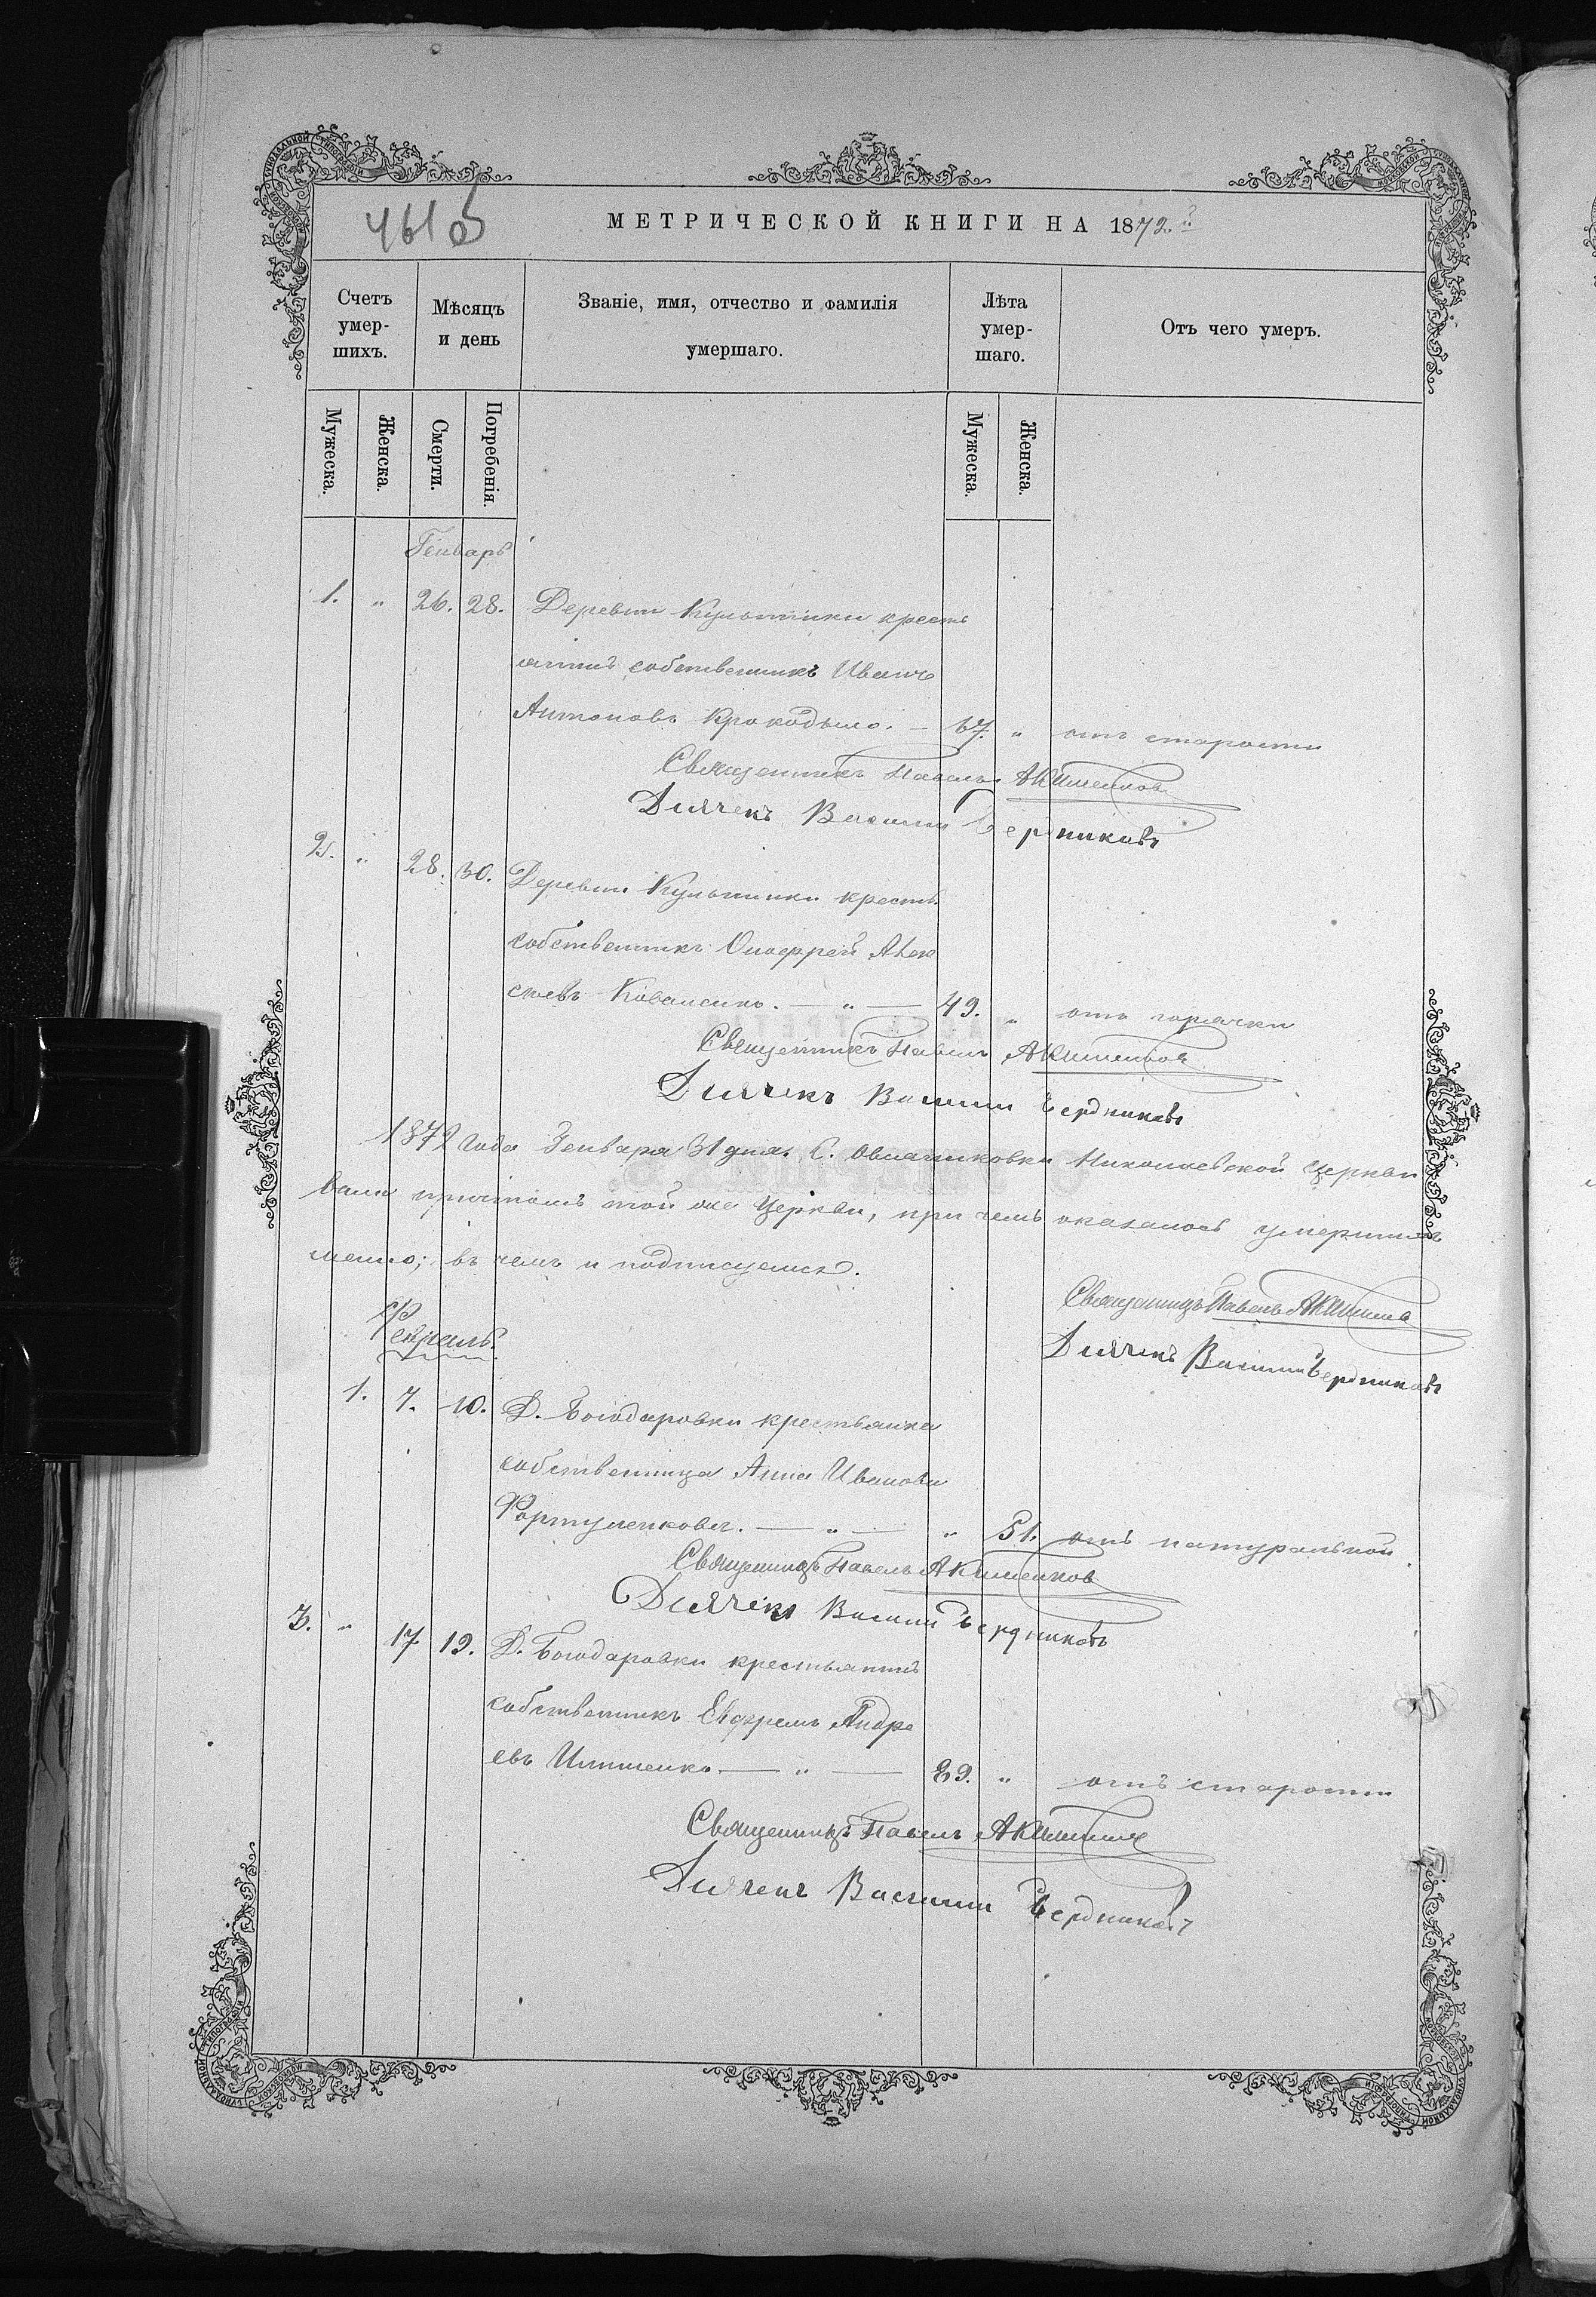 461 об
МЕТРИЧЕСКОЙ КНИГИ НА 1872 г.
Счетъ умер-шихъ. Мѣсяцъ и день Званіе, имя, отчество и фамилія умершаго. Лѣта умер-шаго. Отъ чего умеръ.
Мужеска. Женска. Смерти. Погребенія. Мужеска. Женска.
Генварь
1. „ 26. 28. Деревни крестъ
янинъ собственникъ Иванъ
Антоновъ Крокодыло. — 67. „ отъ старости
Священникъ Павелъ Акименков
Дьячекъ Василий Бердниковъ
2. „ 28. 30. Деревни крестъ.
собственникъ Онофрей Алек
сѣевъ Коваленко. — „ — 49. „ отъ горячки
Священникъ Павелъ Акименков
Дьячекъ Василий Бердниковъ
1872 года Генваря 31 дня. С. Николаевской церкви
вали причтомъ той же Церкви, при чемъ оказалось умершихъ
мено; въ чемъ и подписуемся.
Священникъ Павелъ Акименков
Дьячекъ Василий Бердниковъ
Февраль.
1. 7. 10. Д. Богодаровки крестьянка
собственница Анна Иванова
— „ — „ 51. отъ натуральной.
Священникъ Павелъ Акименков
Дьячекъ Василий Бердниковъ
3. „ 17. 19. Д. Богодаровки крестьянинъ
собственникъ Ефремъ Андре
евъ — „ — 89. „ отъ старости
Священникъ Павелъ Акименков
Дьячекъ Василий Бердниковъ